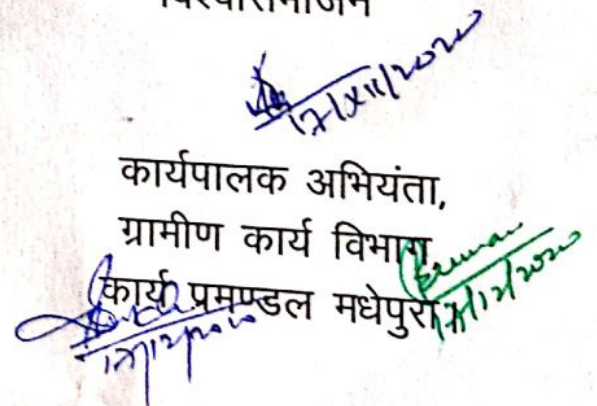 विश्वासभाजन
17/XII/2020
कार्यपालक अभियंता,
ग्रामीण कार्य विभाग
कार्य प्रमण्डल मधेपुरा
17/12/2020
17/12/2020